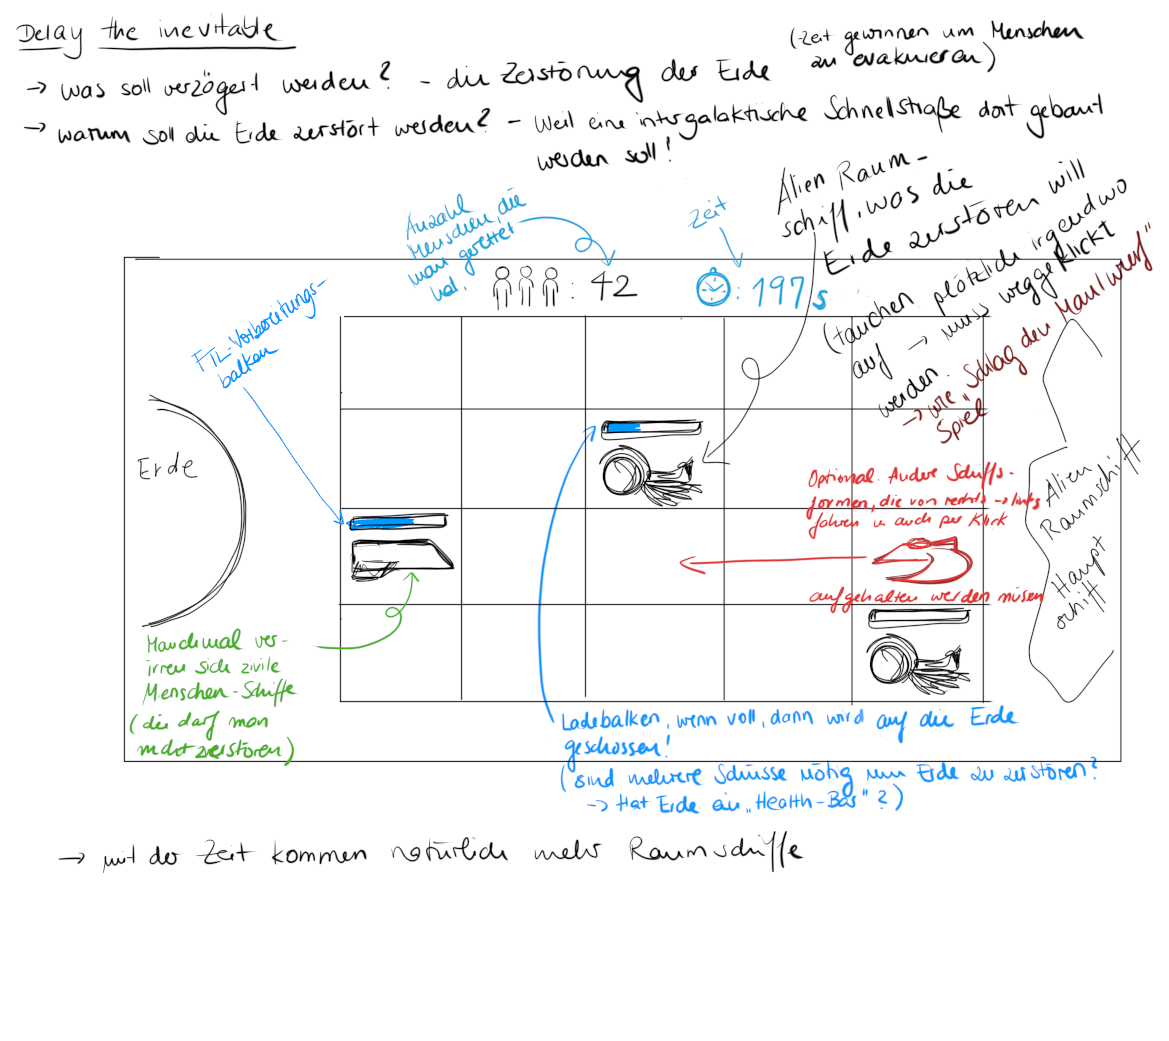 Delay the inevitable
(Zeit gewinnen um Menschen
zu evakuieren)
→ was soll verzögert werden? - die Zerstörung der Erde
→ warum soll die Erde zerstört werden? - Weil eine intergalaktische Schnellstraße dort gebaut
werden soll!
Anzahl
Menschen, die
man gerettet
hat.
Zeit
Alien Raum-
schiff, was die
Erde zerstören will
(tauchen plötzlich irgendwo
auf → muss weggeklickt
werden.
→ wie "Schlag den Maulwurf"
Spiel
: 42
: 197s
FTL-Vorbereitungs-
balken
Erde
Optional. Andere Schiffs-
formen, die von rechts → links
fahren u auch per Klick
aufgehalten werden müssen
Alien
Raumschiff
Haupt
schiff
Manchmal ver-
irren sich zivile
Menschen-Schiffe
(die darf man
nicht zerstören)
Ladebalken, wenn voll, dann wird auf die Erde
geschossen!
(sind mehrere Schüsse nötig um Erde zu zerstören?
→ Hat Erde ein „Health-Bar" ?)
→ mit der Zeit kommen natürlich mehr Raumschiffe